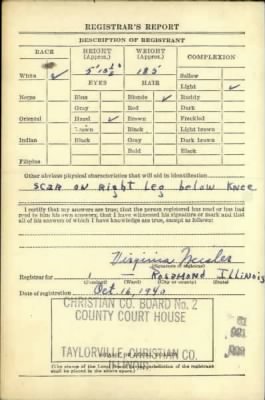 REGISTRAR'S REPORT
DESCRIPTION OF REGISTRANT
RACE HEIGHT (Approx.) WEIGHT (Approx.) COMPLEXION
White ✓ 5' 10½" 185 Sallow
EYES HAIR Light ✓
Negro Blue Blonde ✓ Ruddy
Gray Red Dark
Oriental Hazel ✓ Brown Freckled
Brown Black Light brown
Indian Black Gray Dark brown
Bald Black
Filipino
Other obvious physical characteristics that will aid in identification
Scar on Right Leg below Knee
I certify that my answers are true; that the person registered has read or has had
read to him his own answers; that I have witnessed his signature or mark and that
all of his answers of which I have knowledge are true, except as follows:
Virginia
(Signature of registrar)
Registrar for 1 Rosamond Illinois
(Precinct) (Ward) (City or county) (State)
Date of registration Oct. 16, 1940
CHRISTIAN CO. BOARD No. 2
COUNTY COURT HOUSE
TAYLORVILLE, CHRISTIAN CO.
ILLINOIS
(The stamp of the Local Board having jurisdiction of the registrant
shall be placed in the above space.)